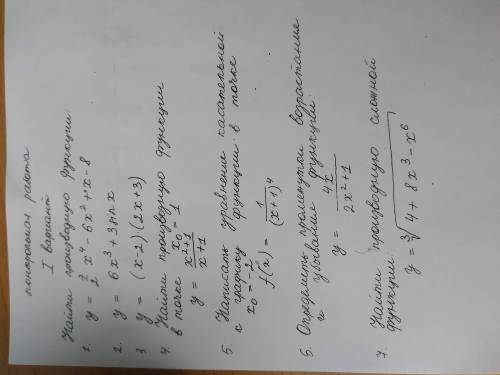 контрольная работа
I вариант
Найти производную функции
1. y = 7/2 x⁴ - 6x² + x - 8
2. y = 6x³ + 3 x
3 y = (x-2)(2x+3)
4. Найти производную функции
в точке x₀ = 1
y = x²+1 / x⁴+1
5. Написать уравнение касательной
к графику функции в точке
x₀ = -2
f(x) = 1/(x+1)⁴
6. Определить промежутки возрастание
и убывания функции
y = 4x / 2x²+1
7. Найти производную сложной
функции
y = ³√4 + 8x³ - x⁶